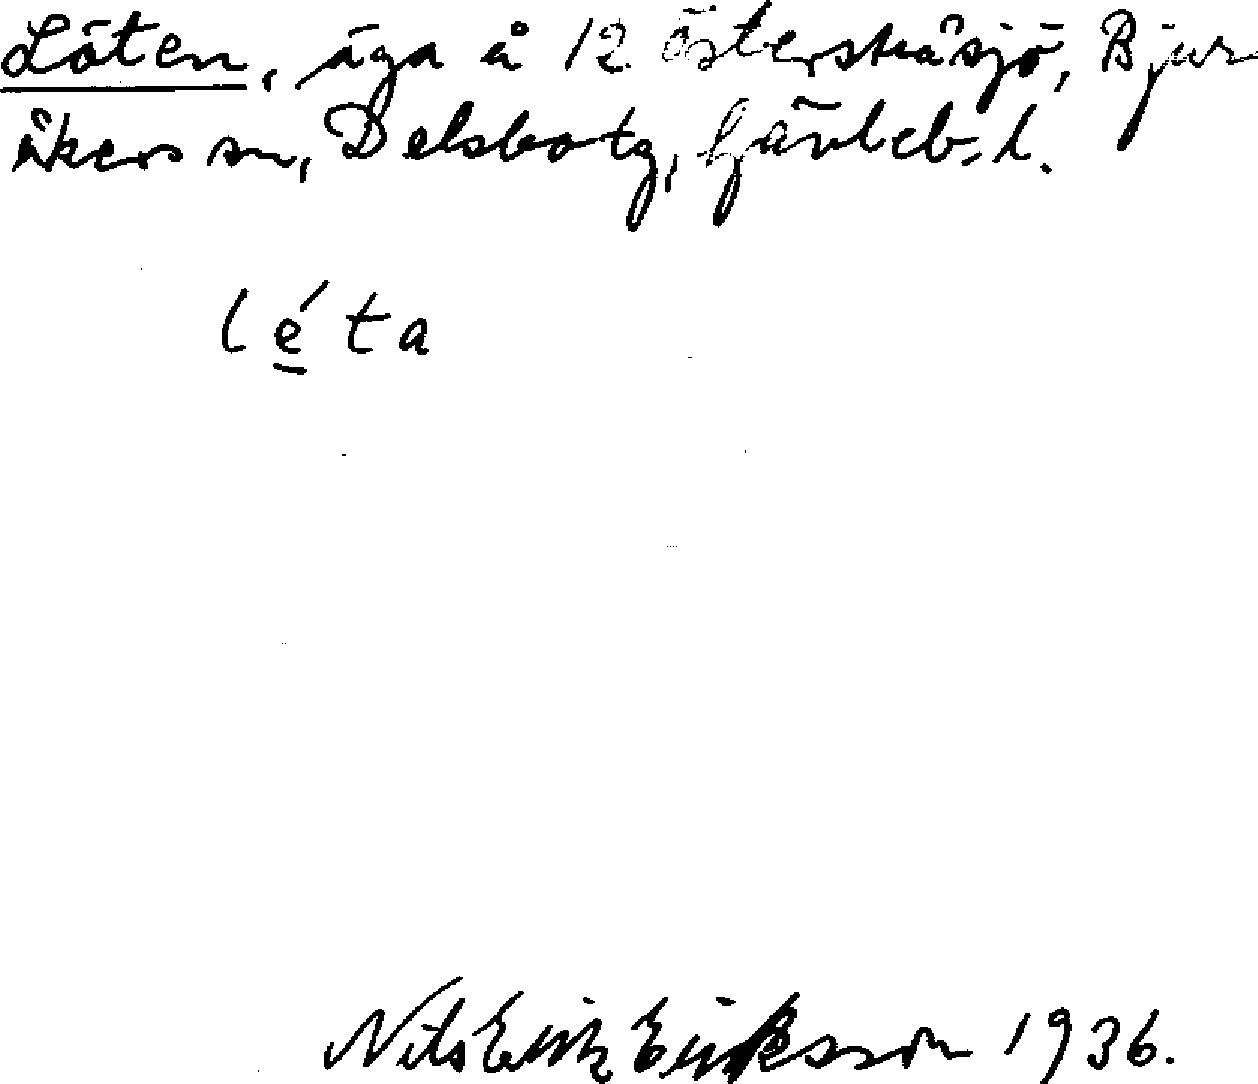 Löten, äga å 12 Österstråsjö, Bjur
åkers sn, Delsbo tg, Gävleb. l.
léta
Nils Erik Eriksson 1936.